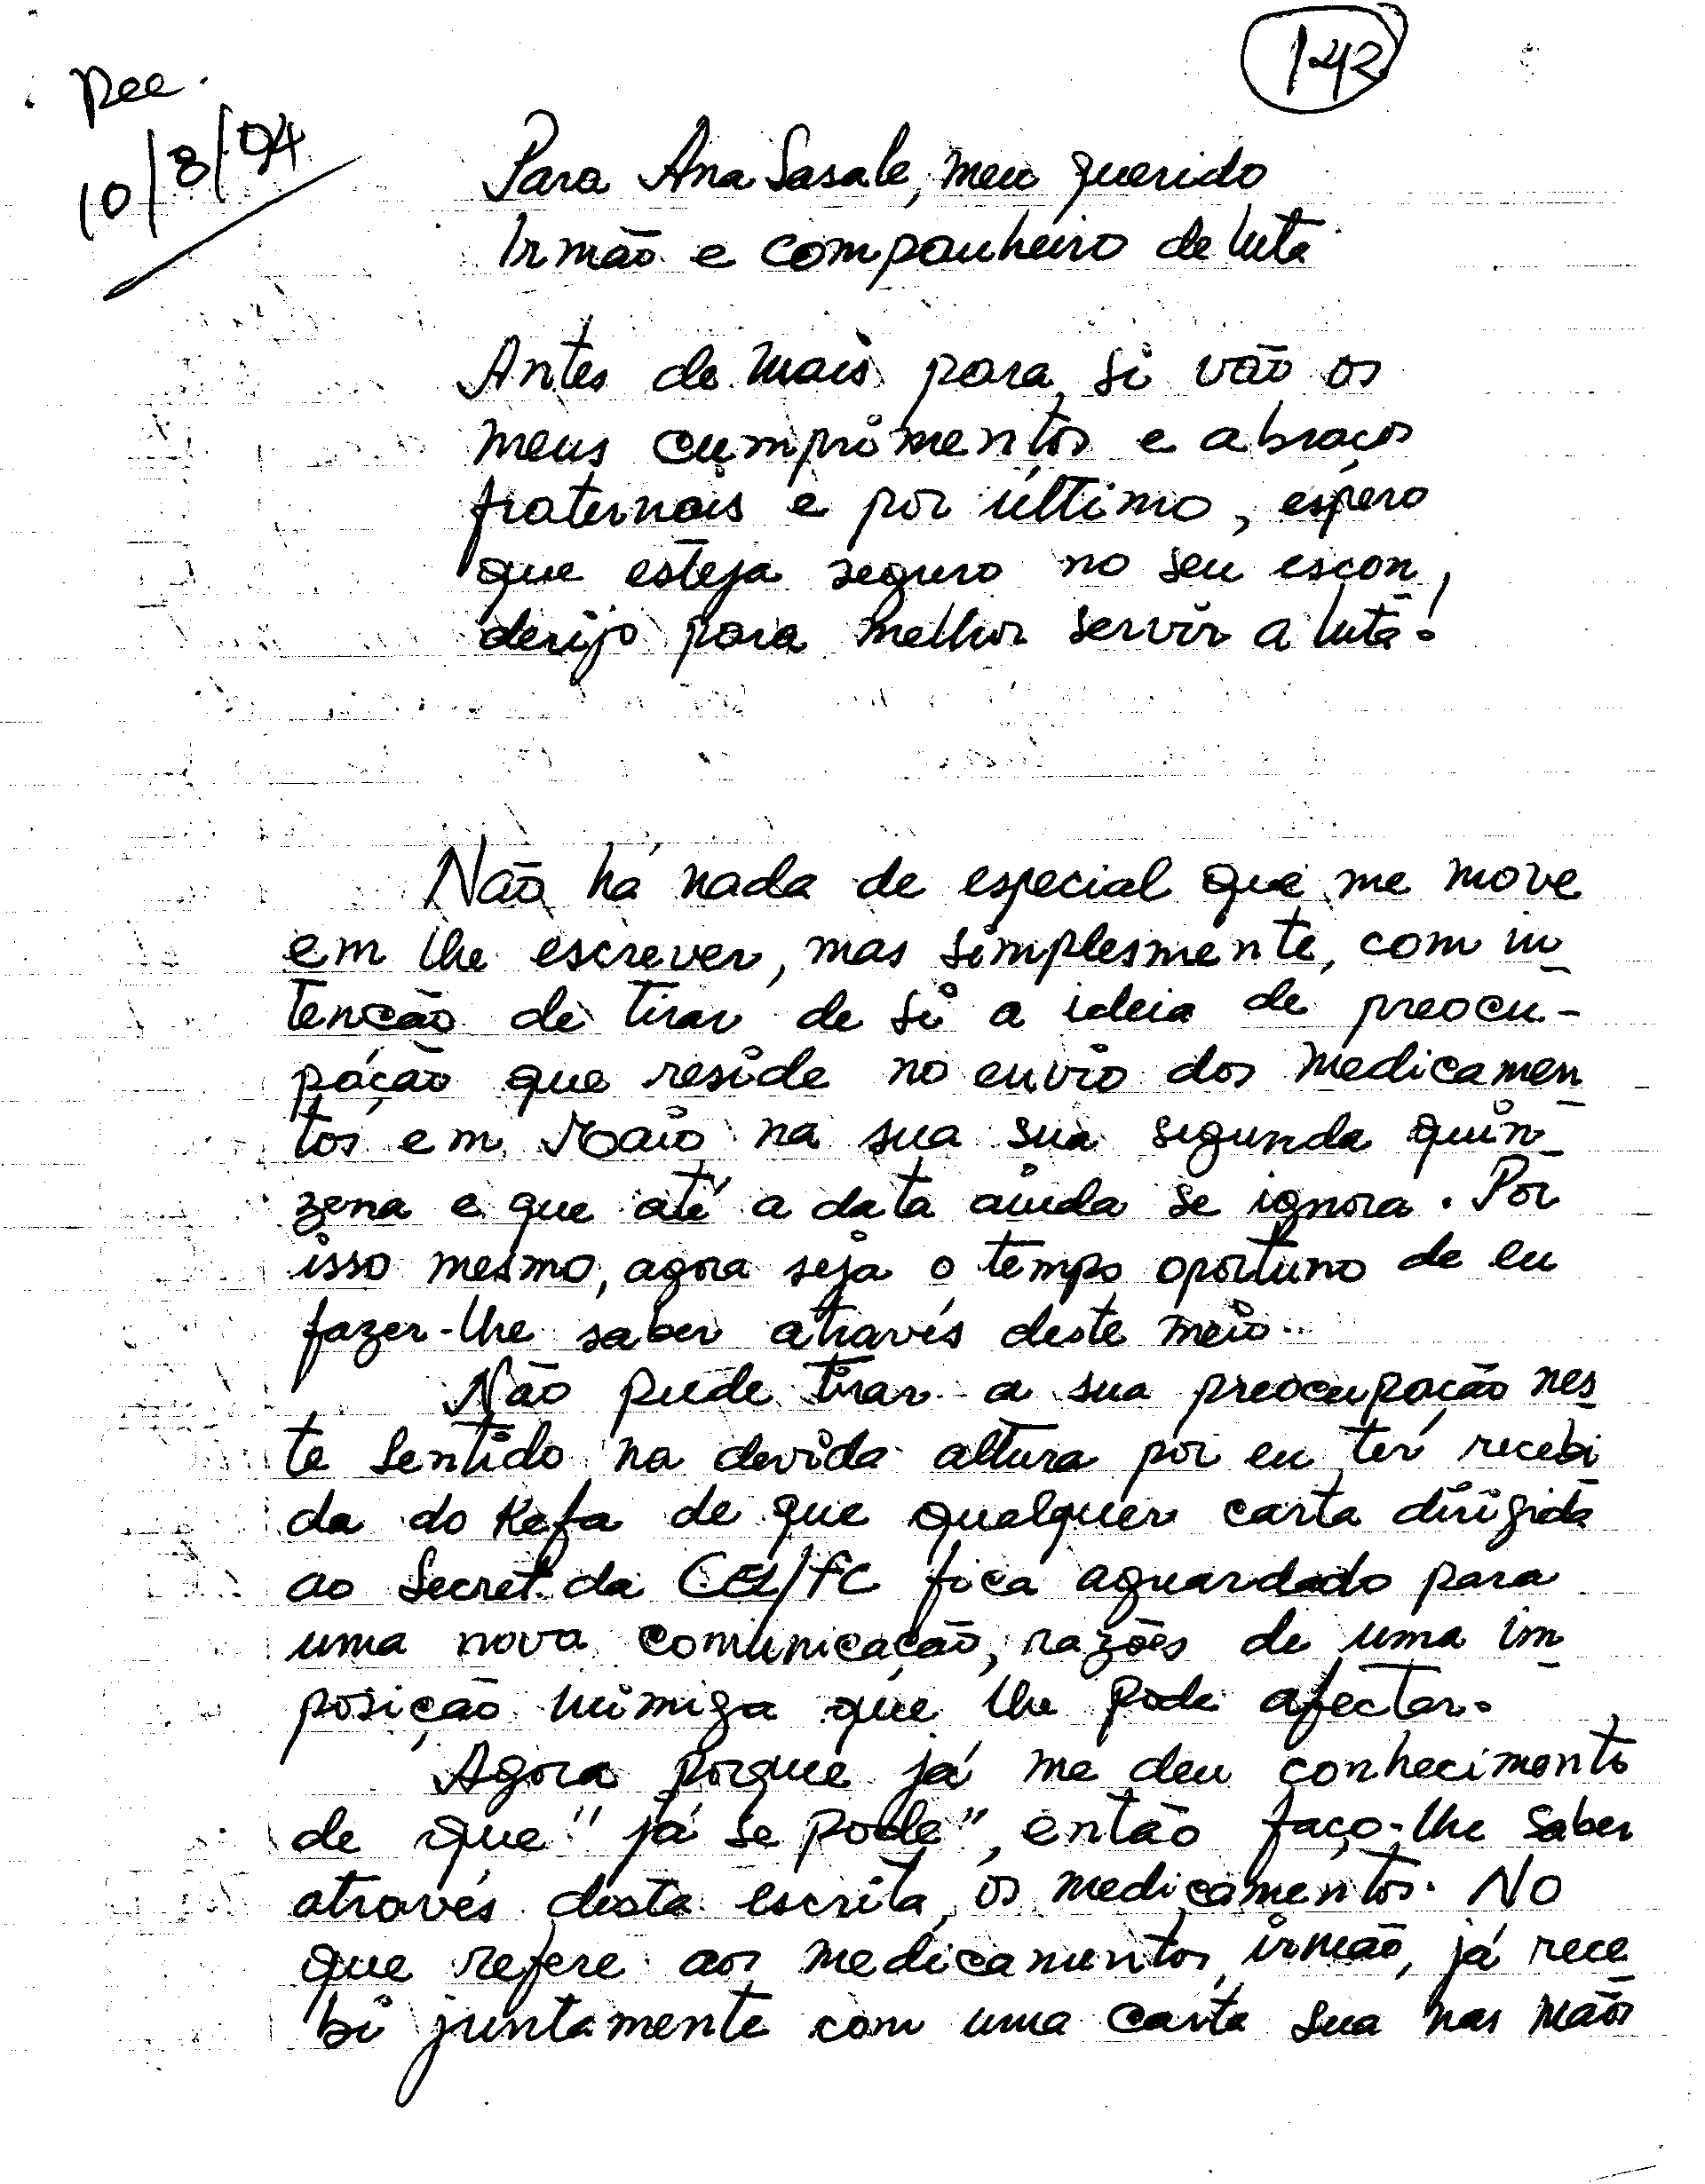 142
Rec.
10/8/94
Para Ana Sasale, meu querido
Irmão e companheiro de luta
Antes de mais para si vão os
meus cumprimentos e abraços
fraternais e por último, espero
que esteja seguro no seu escon
derijo para melhor servir a luta!
Não há nada de especial que me move
em lhe escrever, mas simplesmente, com in
tenção de tirar de si a ideia de preocu-
pação que reside no envio dos medicamen
tos em Maio na sua sua segunda quin
zena e que até a data ainda se ignora. Por
isso mesmo, agora seja o tempo oportuno de eu
fazer-lhe saber através deste meio.
Não pude tirar a sua preocupação nes
te sentido na devida altura por eu ter recebi
da do Kefa de que qualquer carta dirigida
ao Secret. da fica aguardado para
uma nova comunicação, razões de uma im
posição inimiga que lhe pode afectar.
Agora porque já me deu conhecimento
de que "já se pode", então faço-lhe saber
através desta escrita, os medicamentos. No
que refere aos medicamentos, irmão, já rece
bi juntamente com uma carta sua nas mãos